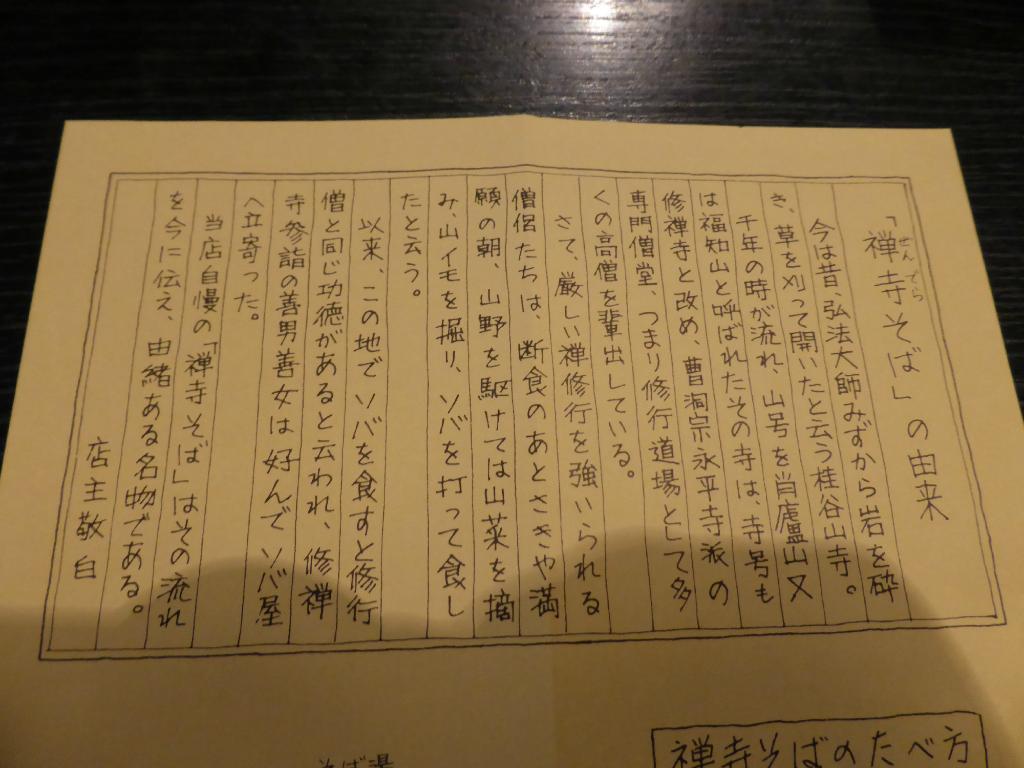 「禅寺そば」の由来
ぜんでら
今は昔、弘法大師みずから岩を砕
き、草を刈って開いたと云う桂谷山寺。
千年の時が流れ、山号を肖廬山又
は福知山と呼ばれたその寺は、寺号も
修禅寺と改め、曹洞宗永平寺派の
専門僧堂、つまり修行道場として多
くの高僧を輩出している。
さて、厳しい禅修行を強いられる
僧侶たちは、断食のあとさきや満
願の朝、山野を駆けては山菜を摘
み、山イモを掘り、ソバを打って食し
たと云う。
以来、この地でソバを食すと修行
僧と同じ功徳があると云われ、修禅
寺参詣の善男善女は好んでソバ屋
へ立寄った。
当店自慢の「禅寺そば」はその流れ
を今に伝え、由緒ある名物である。
店主敬白
禅寺そばのたべ方
そば湯